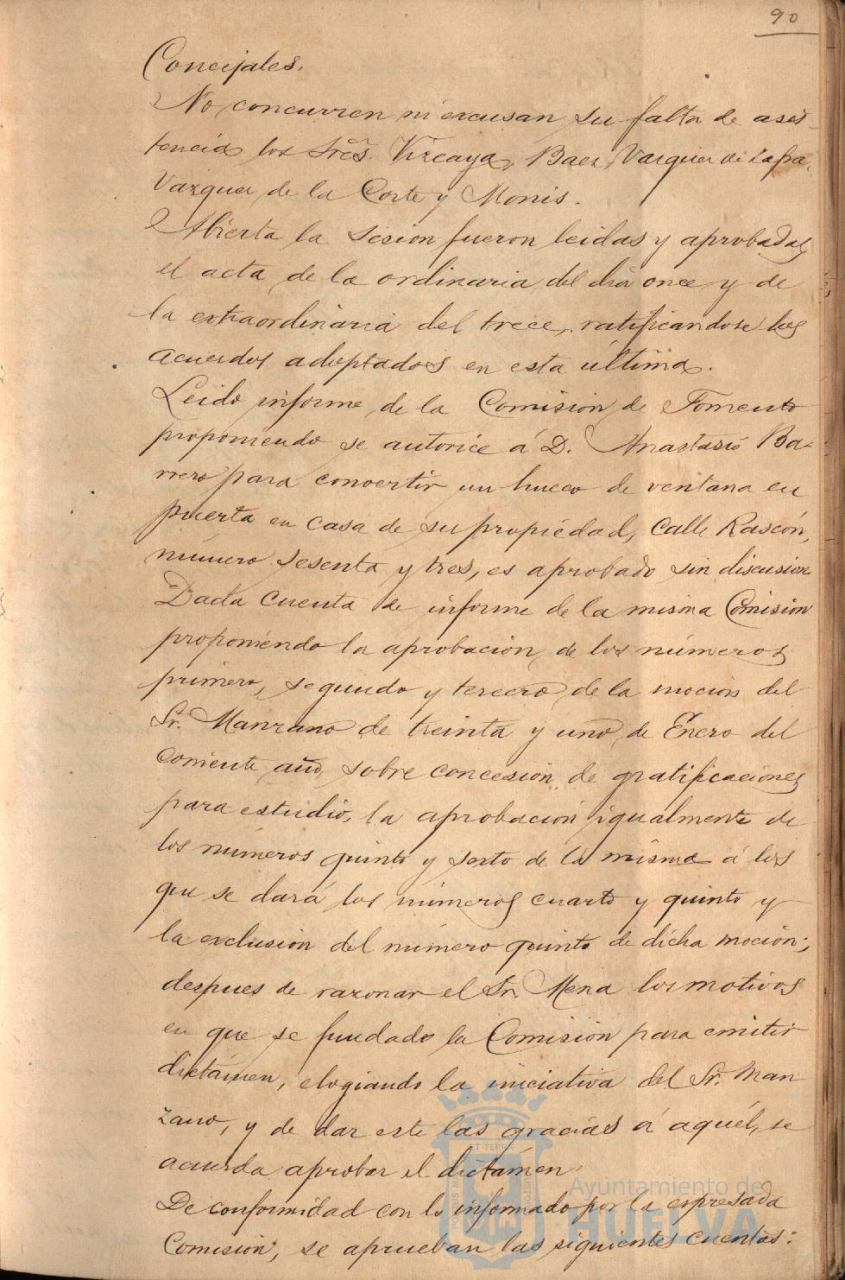 90
Concejales.
No concurren ni excusan su falta de asis-
tencia los Sres. Vizcaya, Baez, Vazquez de Zafra,
Vazquez de la Corte y Monis.
Abierta la sesion fueron leidas y aprobadas
el acta de la ordinaria del dia once y de
la extraordinaria del trece, ratificandose los
acuerdos adoptados en esta última.
Leido informe de la Comision de Fomento
proponiendo se autorice á D. Anastasio Ba-
rrero para convertir un hueco de ventana en
puerta en casa de su propiedad, calle Rascón,
número sesenta y tres, es aprobado sin discusion
Dada cuenta de informe de la misma Comision
proponiendo la aprobacion de los números
primero, segundo y tercero de la mocion del
Sr. Manzano de treinta y uno de Enero del
corriente año, sobre concesion de gratificaciones
para estudio, la aprobacion igualmente de
los números quinto y sexto de la misma á los
que se dará los números cuarto y quinto y
la exclusion del número quinto de dicha mocion;
despues de razonar el Sr. Mena los motivos
en que se fundado la Comisión para emitir
dictámen, elogiando la iniciativa del Sr. Man
zano, y de dar este las gracias á aquél, se
acuerda aprobar el dictámen
De conformidad con lo informado por la espresada
Comisión, se aprueban las siguientes cuentas:
Ayuntamiento de
HUELVA